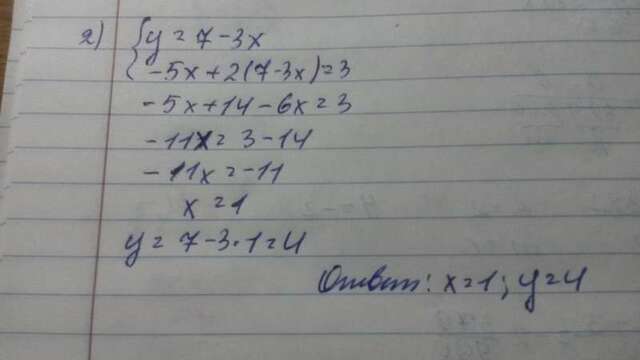 2) { y = 7 - 3x
-5x + 2(7-3x) = 3
-5x + 14 - 6x = 3
-11x = 3 - 14
-11x = -11
x = 1
y = 7 - 3·1 = 4
Ответ: x=1; y=4